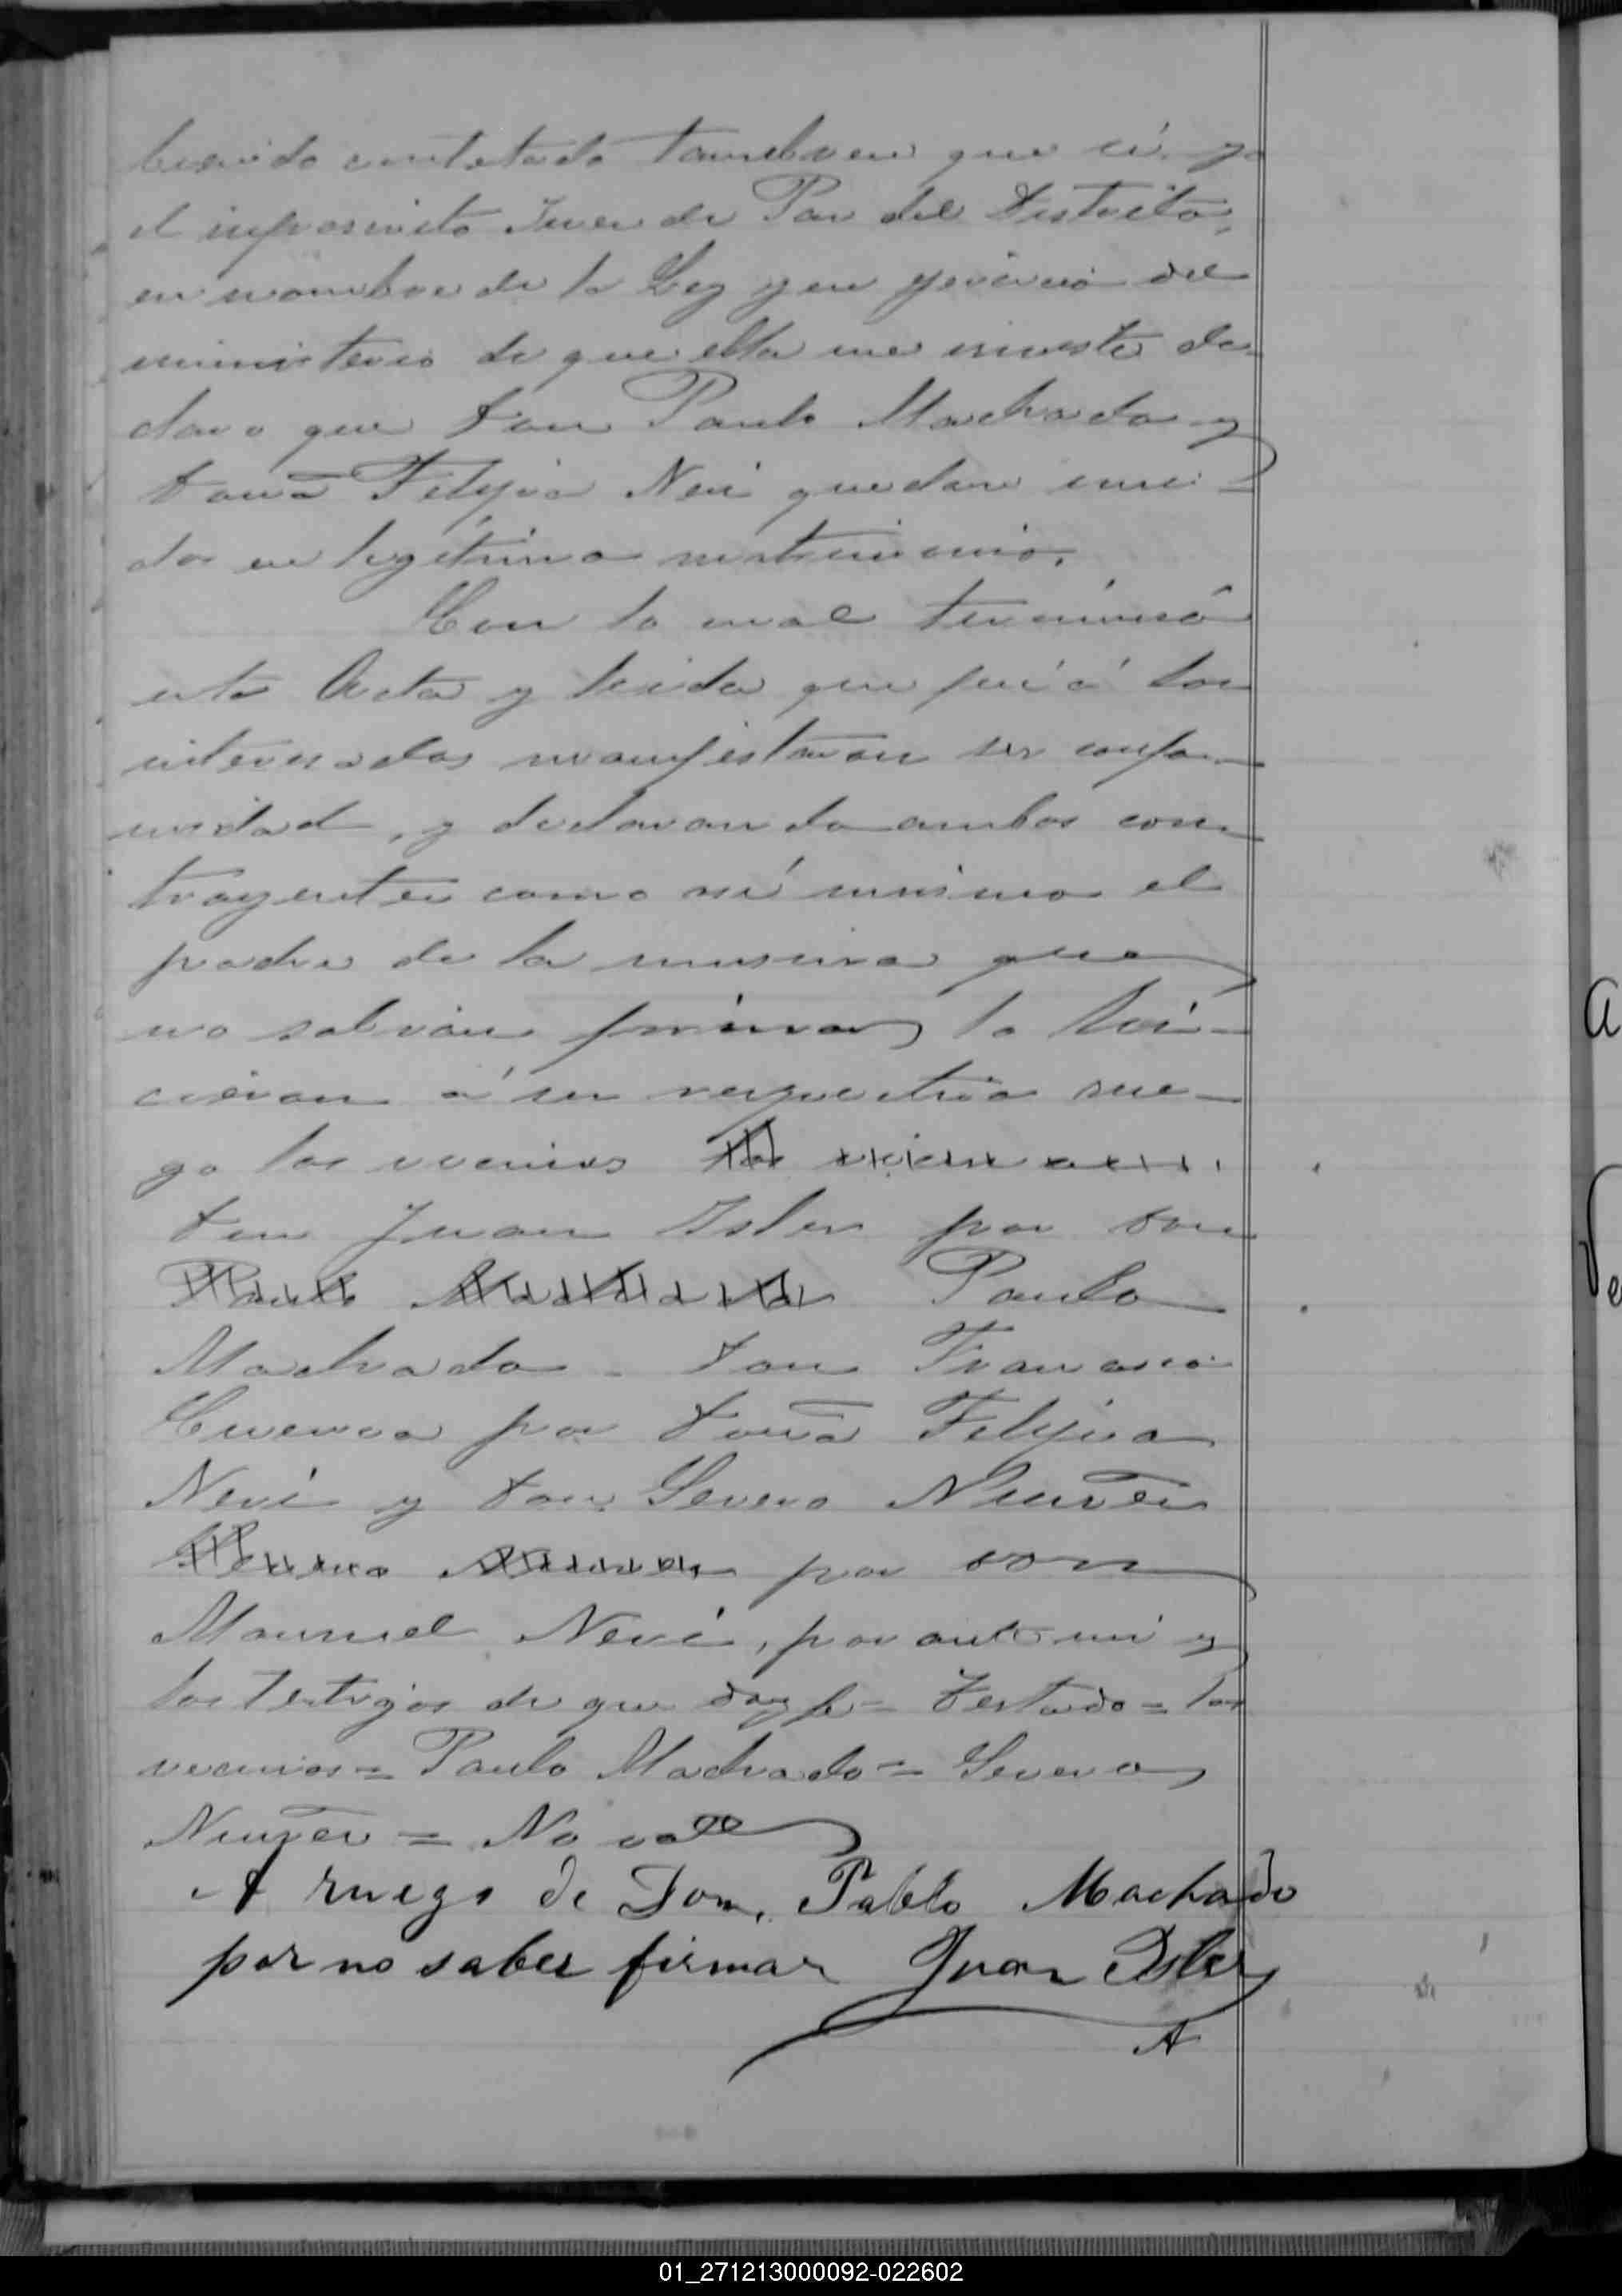 biendo contestado tambien que sí. yo
el infrascrito Juez de Paz del Distrito,
en nombre de la Ley y en ejercicio del
ministerio de que ella me inviste de-
claro que Don Paulo Machado y
Doña Felipa Neri quedan uni-
dos en legítimo matrimonio.
Con lo cual terminó
esta Acta y leida que fué á los
interesados manifestaron su confor-
midad, y declarando ambos con-
trayentes como así mismo el
padre de la misma que
no sabian firmar, lo hi-
cieron á su respectivo rue-
go los vecinos los vecinos
Don Juan Isler por Don
Paulo Machado Paulo
Machado - Don Francisco
Cuenca por Doña Felipa
Neri y Don Severo Nuñez
Severo Nuñez por Don
Manuel Neri, por ante mi y
los Testigos de que doy fé = Testado = los
vecinos = Paulo Machado = Severo
Nuñez = No vale
A ruego de Don, Pablo Machado
por no saber firmar Juan Isler
A
a
01_271213000092-022602